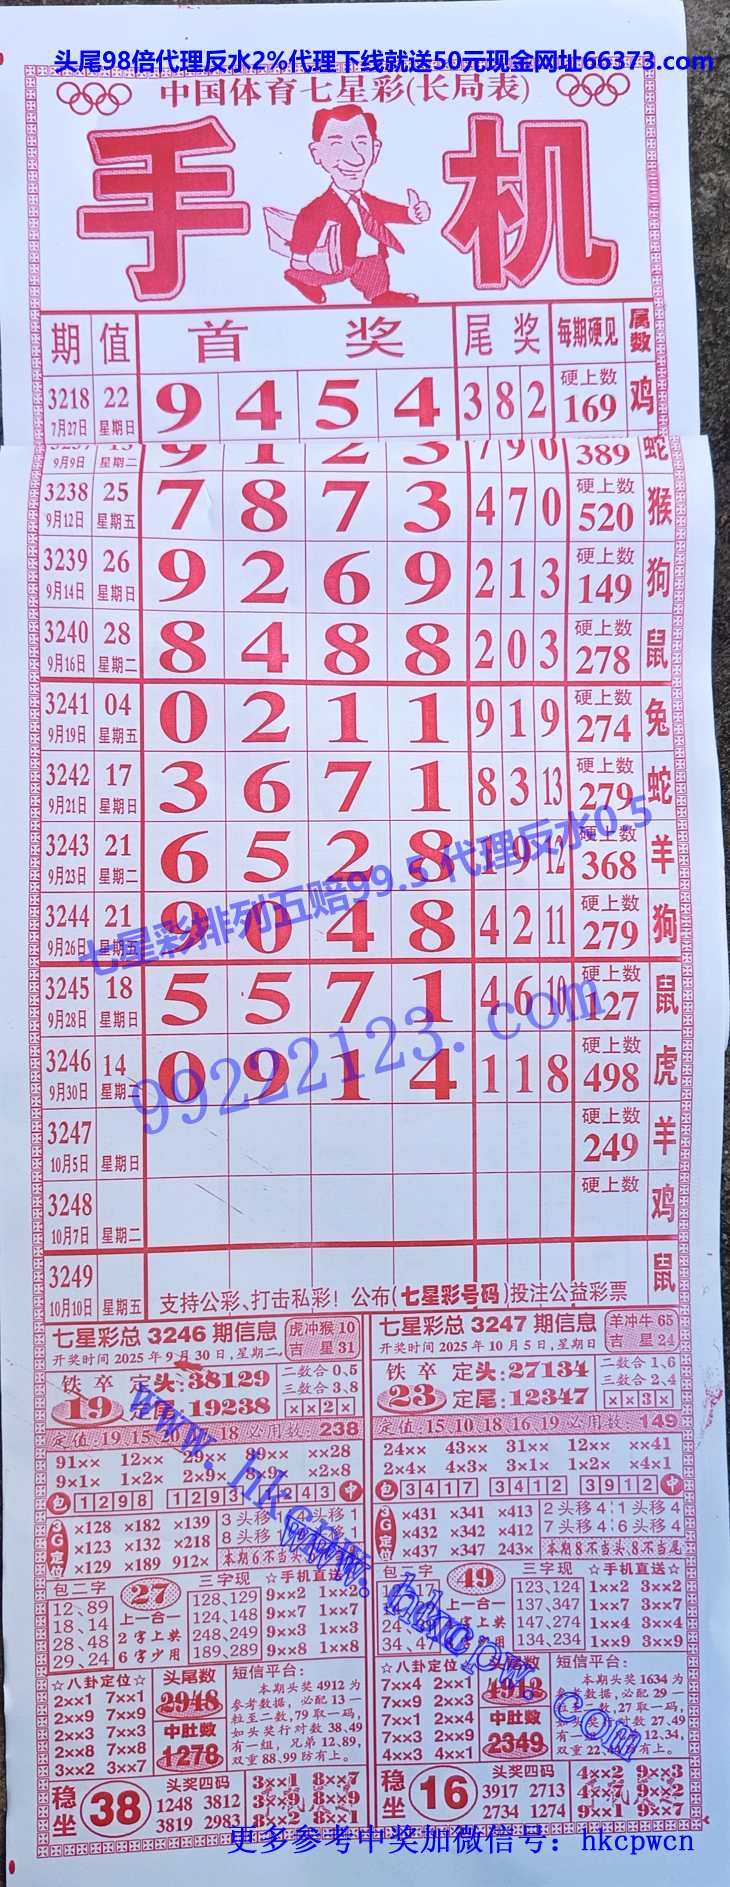 头尾98倍代理反水2%代理下线就送50元现金网址66373.com
中国体育七星彩(长局表)
手机
期 值 首奖 尾奖 每期硬见 属数
3218 22 9 4 5 4 3 8 2 硬上数 鸡
7月27日 星期日 169
9 1 2 3 7 9 0 蛇
9月9日 星期二 389
3238 25 7 8 7 3 4 7 0 硬上数 猴
9月12日 星期五 520
3239 26 9 2 6 9 2 1 3 硬上数 狗
9月14日 星期日 149
3240 28 8 4 8 8 2 0 3 硬上数 鼠
9月16日 星期二 278
3241 04 0 2 1 1 9 1 9 硬上数 兔
9月19日 星期五 274
3242 17 3 6 7 1 8 3 13 硬上数 蛇
9月21日 星期日 279
3243 21 6 5 2 8 1 9 12 硬上数 羊
9月23日 星期二 368
七星彩排列五赔99.5 代理反水0.5
3244 21 9 0 4 8 4 2 11 硬上数 狗
9月26日 星期五 279
3245 18 5 5 7 1 4 6 10 硬上数 鼠
9月28日 星期日 127
99222123.com
3246 14 0 9 1 4 1 1 8 硬上数 虎
9月30日 星期二 498
3247 硬上数 羊
10月5日 星期日 249
3248 硬上数 鸡
10月7日 星期二
3249 鼠
10月10日 星期五 支持公彩、打击私彩！公布(七星彩号码)投注公益彩票
七星彩总 3246 期信息 虎冲猴10
开奖时间 2025年9月30日,星期二. 吉星31
铁卒 定头:38129 二数合 0、5
三数合 3、8
19 定尾:19238 ××2×
必用数: 238
91×× 12×× 29×× 89×× ××28
9×1× 1×2× 2×9× 8×9× ×2×8
包 1298 1293 中
3G定位 ×128 ×182 ×139
×123 ×132 ×218
×129 ×189 912×
包二字 27 三字现 ☆手机直送☆
12、89 128、129 9××2 1××2
18、14 上一合一 124、148 9××7 1××7
28、48 2字上奖 248、249 9××3 1××3
29、24 6字少用 189、289 9××8 1××8
☆八卦定位☆ 头尾数 短信平台:
2××1 7××1 2948 本期头奖 4912 为
2××9 7××9 参考数据，必配 13 一
2××3 7××3 中肚数 粒至二数，79 取一码，
2××8 7××8 1278 如头奖行对数 38、49
3××2 3××7 有一组，兄弟 12、89，
双重 88、99 防有上。
稳坐 38 头奖四码 3××1 8××7
1248 3812 3××8 8××9
3819 2983 8××2 8××1
七星彩总 3247 期信息 羊冲牛65
开奖时间 2025年10月5日,星期日 吉星24
铁卒 定头:27134 二数合 1、6
三数合 2、4
23 定尾:12347 ××3×
定值:15、10、18、16、19 必用数: 149
24×× 43×× 31×× 12×× ××41
2×4× 4×3× 3×1× 1×2× ×4×1
包 3417 3412 3912 中
3G定位 ×431 ×341 ×413 2头移4 1头移4
×432 ×342 ×412 7头移4 6头移4
×437 ×347 243× 本期8不当头、8不当尾
49 三字现 ☆手机直送☆
123、124 1××2 3××2
137、347 1××7 3××7
147、274 1××4 3××4
134、234 1××9 3××9
☆八卦定位☆ 头尾数 短信平台:
7××4 2××1 4912 本期头奖 1634 为
7××2 2××3
7××1 2××4 中肚数
7××3 2××9 2349
4××3 4××1
稳坐 16 头奖四码 4××2 9××3
3917 2713 4××7 9××2
2734 1274 9××1 9××7
www.hkcpw.com
更多参考中奖加微信号：hkcpwcn